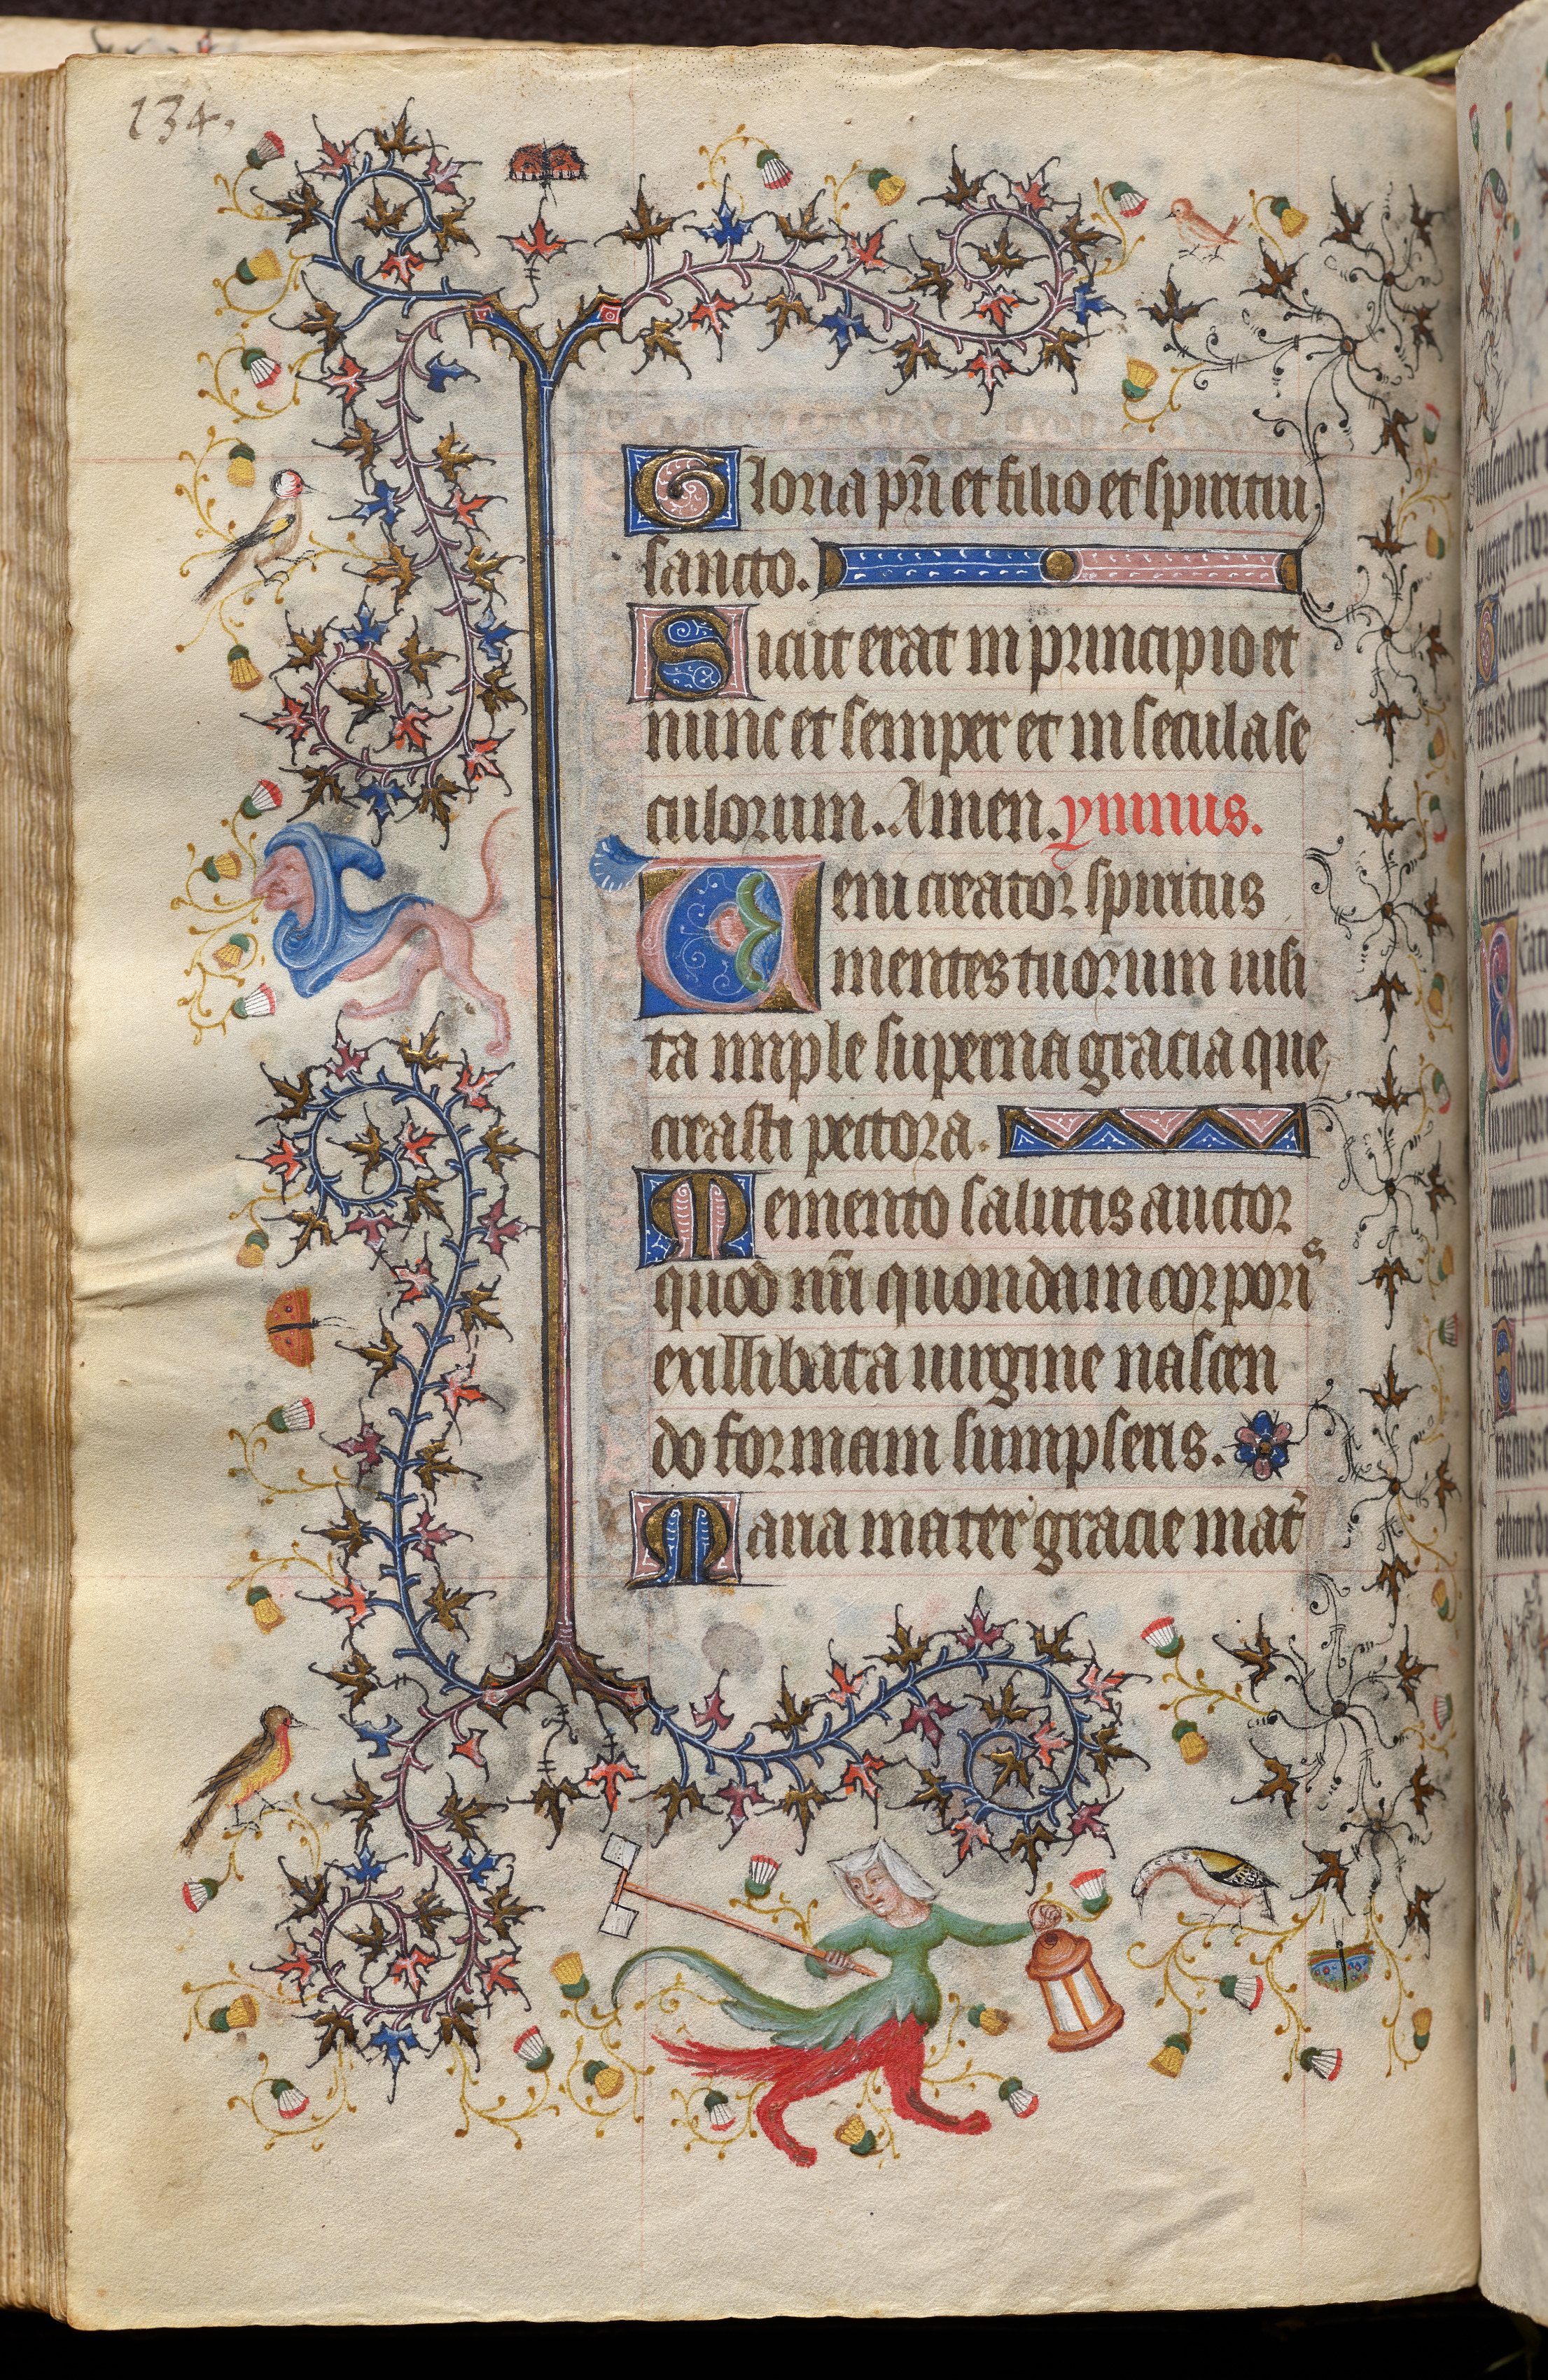 134.
Gloria pr̄i et filio et spiritui
sancto.
Sicut erat in principio et
nunc et semper et in secula se
culorum. Amen. ymnus.
Veni creator spiritus
mentes tuorum uisi
ta imple superna gracia que
creasti pectora.
Memento salutis auctor
quod nr̄i quondam corporis
ex illibata uirgine nascen
do formam sumpseris.
Maria mater gracie mat̉